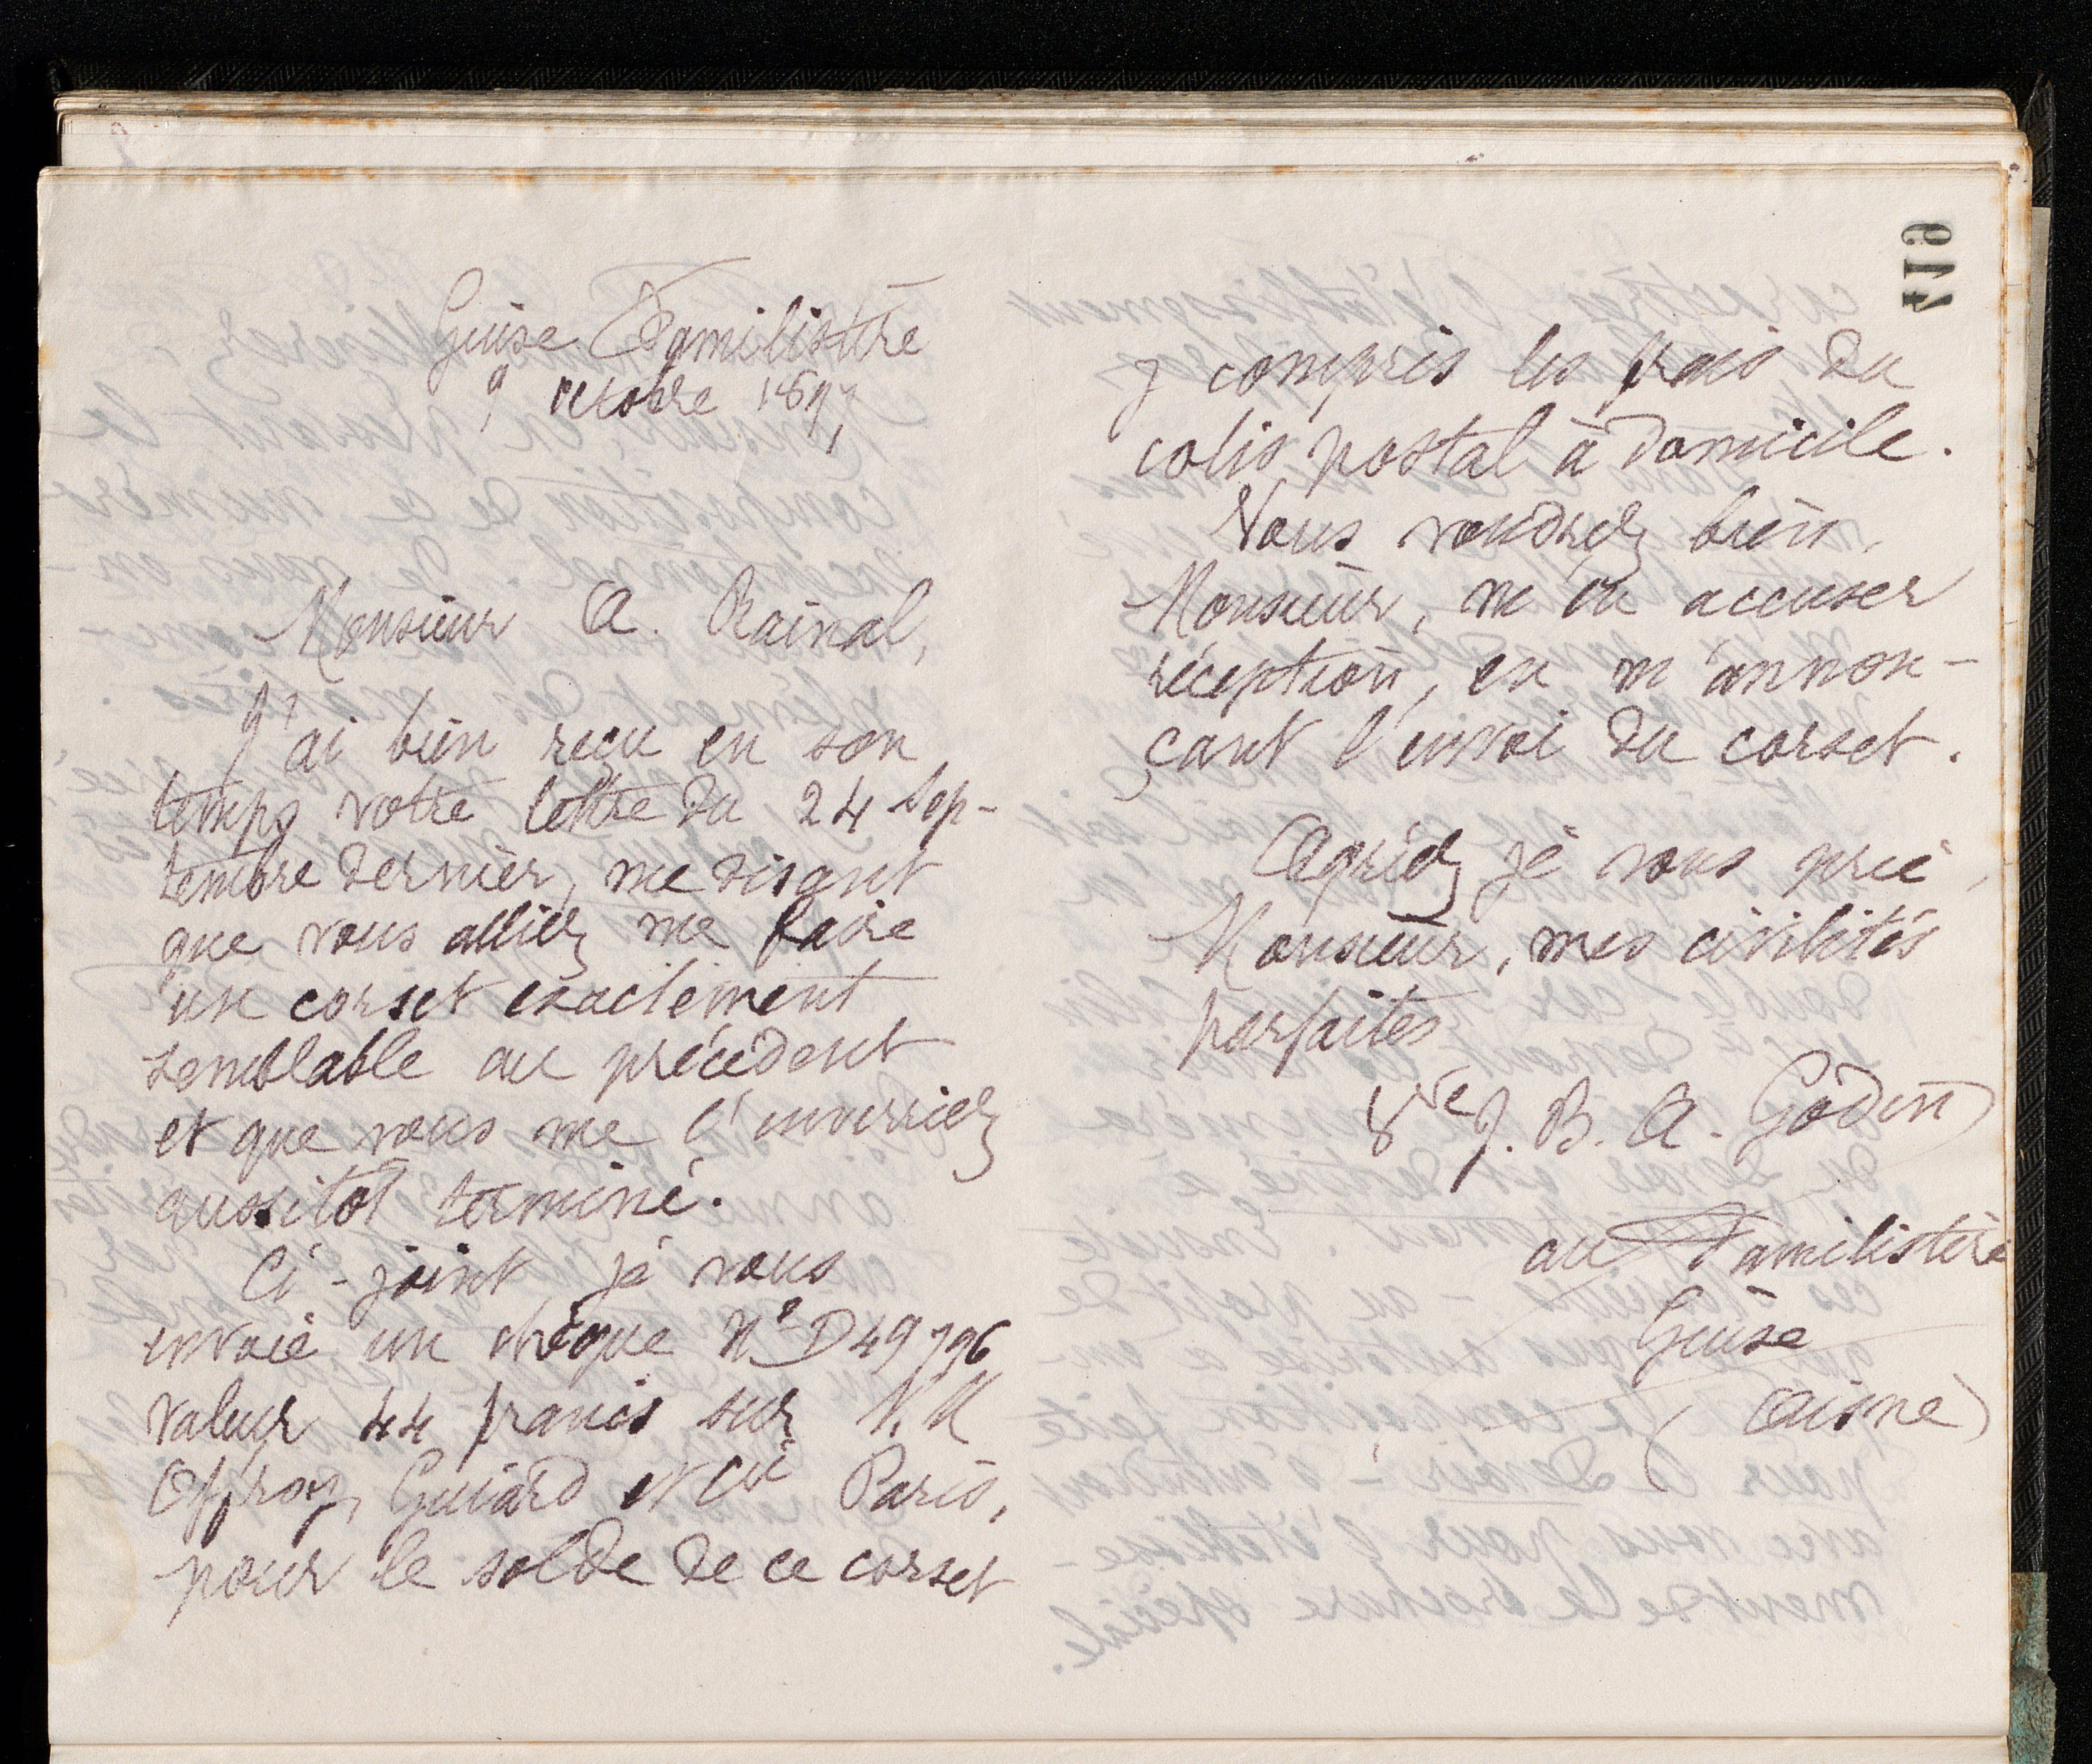 Guise Familistère
9 octobre 1897
Monsieur A. Rainal,
J'ai bien reçu en son
temps votre lettre du 24 Sep-
tembre dernier, me disant
que vous alliez me faire
un corset exactement
semblable au précédent
et que vous me l'enverriez
aussitôt terminé.
Ci-joint je vous
envoie un chèque No D49796
valeur 44 francs sur
Offroy, Guiard et Cie Paris,
pour le solde de ce corset
619
y compris les frais du
colis postal à domicile.
Vous voudrez bien,
Monsieur, m'en accuser
réception, en m'annon-
çant l'envoi du corset.
Agréez je vous prie,
Monsieur, mes civilités
parfaites
Vve J. B. A. Godin
au Familistère
Guise
(Aisne)